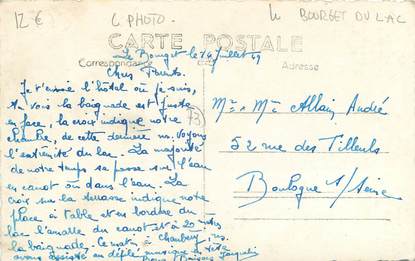 12€
C PHOTO.
LE BOURGET DU LAC
CARTE POSTALE
Correspondance
Adresse
Le Bourget le 14 Juillet 49
Chers Parents.
Je t'envoie l'hôtel où je suis,
tu vois la baignade est juste
en face, la croix indique notre
chambre, de cette dernière ns. voyons
l'extrémité du lac. La majorité
de notre temps se passe sur l'eau
en canot ou dans l'eau. La
croix sur la terrasse indique notre
place à table et en bordure du
lac l'amarre du canot et à 20 mètres
la baignade. Ce matin à Chambéry, ns.
avons assisté en défilé
73
Mr. & Me. Allain André
52 rue des Tilleuls
Boulogne s/ Seine